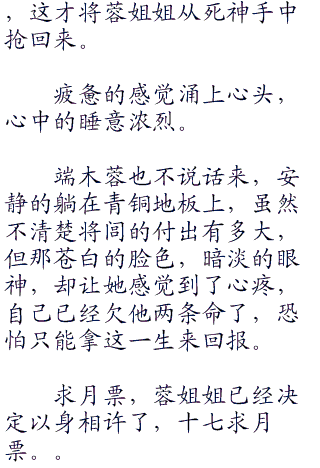 ，这才将蓉姐姐从死神手中
抢回来。
疲惫的感觉涌上心头，
心中的睡意浓烈。
端木蓉也不说话来，安
静的躺在青铜地板上，虽然
不清楚将闾的付出有多大，
但那苍白的脸色，暗淡的眼
神，却让她感觉到了心疼，
自己已经欠他两条命了，恐
怕只能拿这一生来回报。
求月票，蓉姐姐已经决
定以身相许了，十七求月
票。。